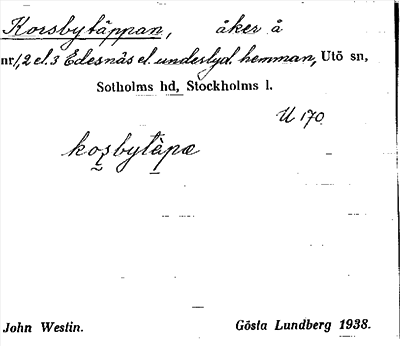 Korsbytäppan, åker å
nr 1, 2 el. 3 Edesnäs el. underlyd. hemman, Utö sn,
Sotholms hd, Stockholms l.
U 170
kosbytäpæ
John Westin.
Gösta Lundberg 1938.